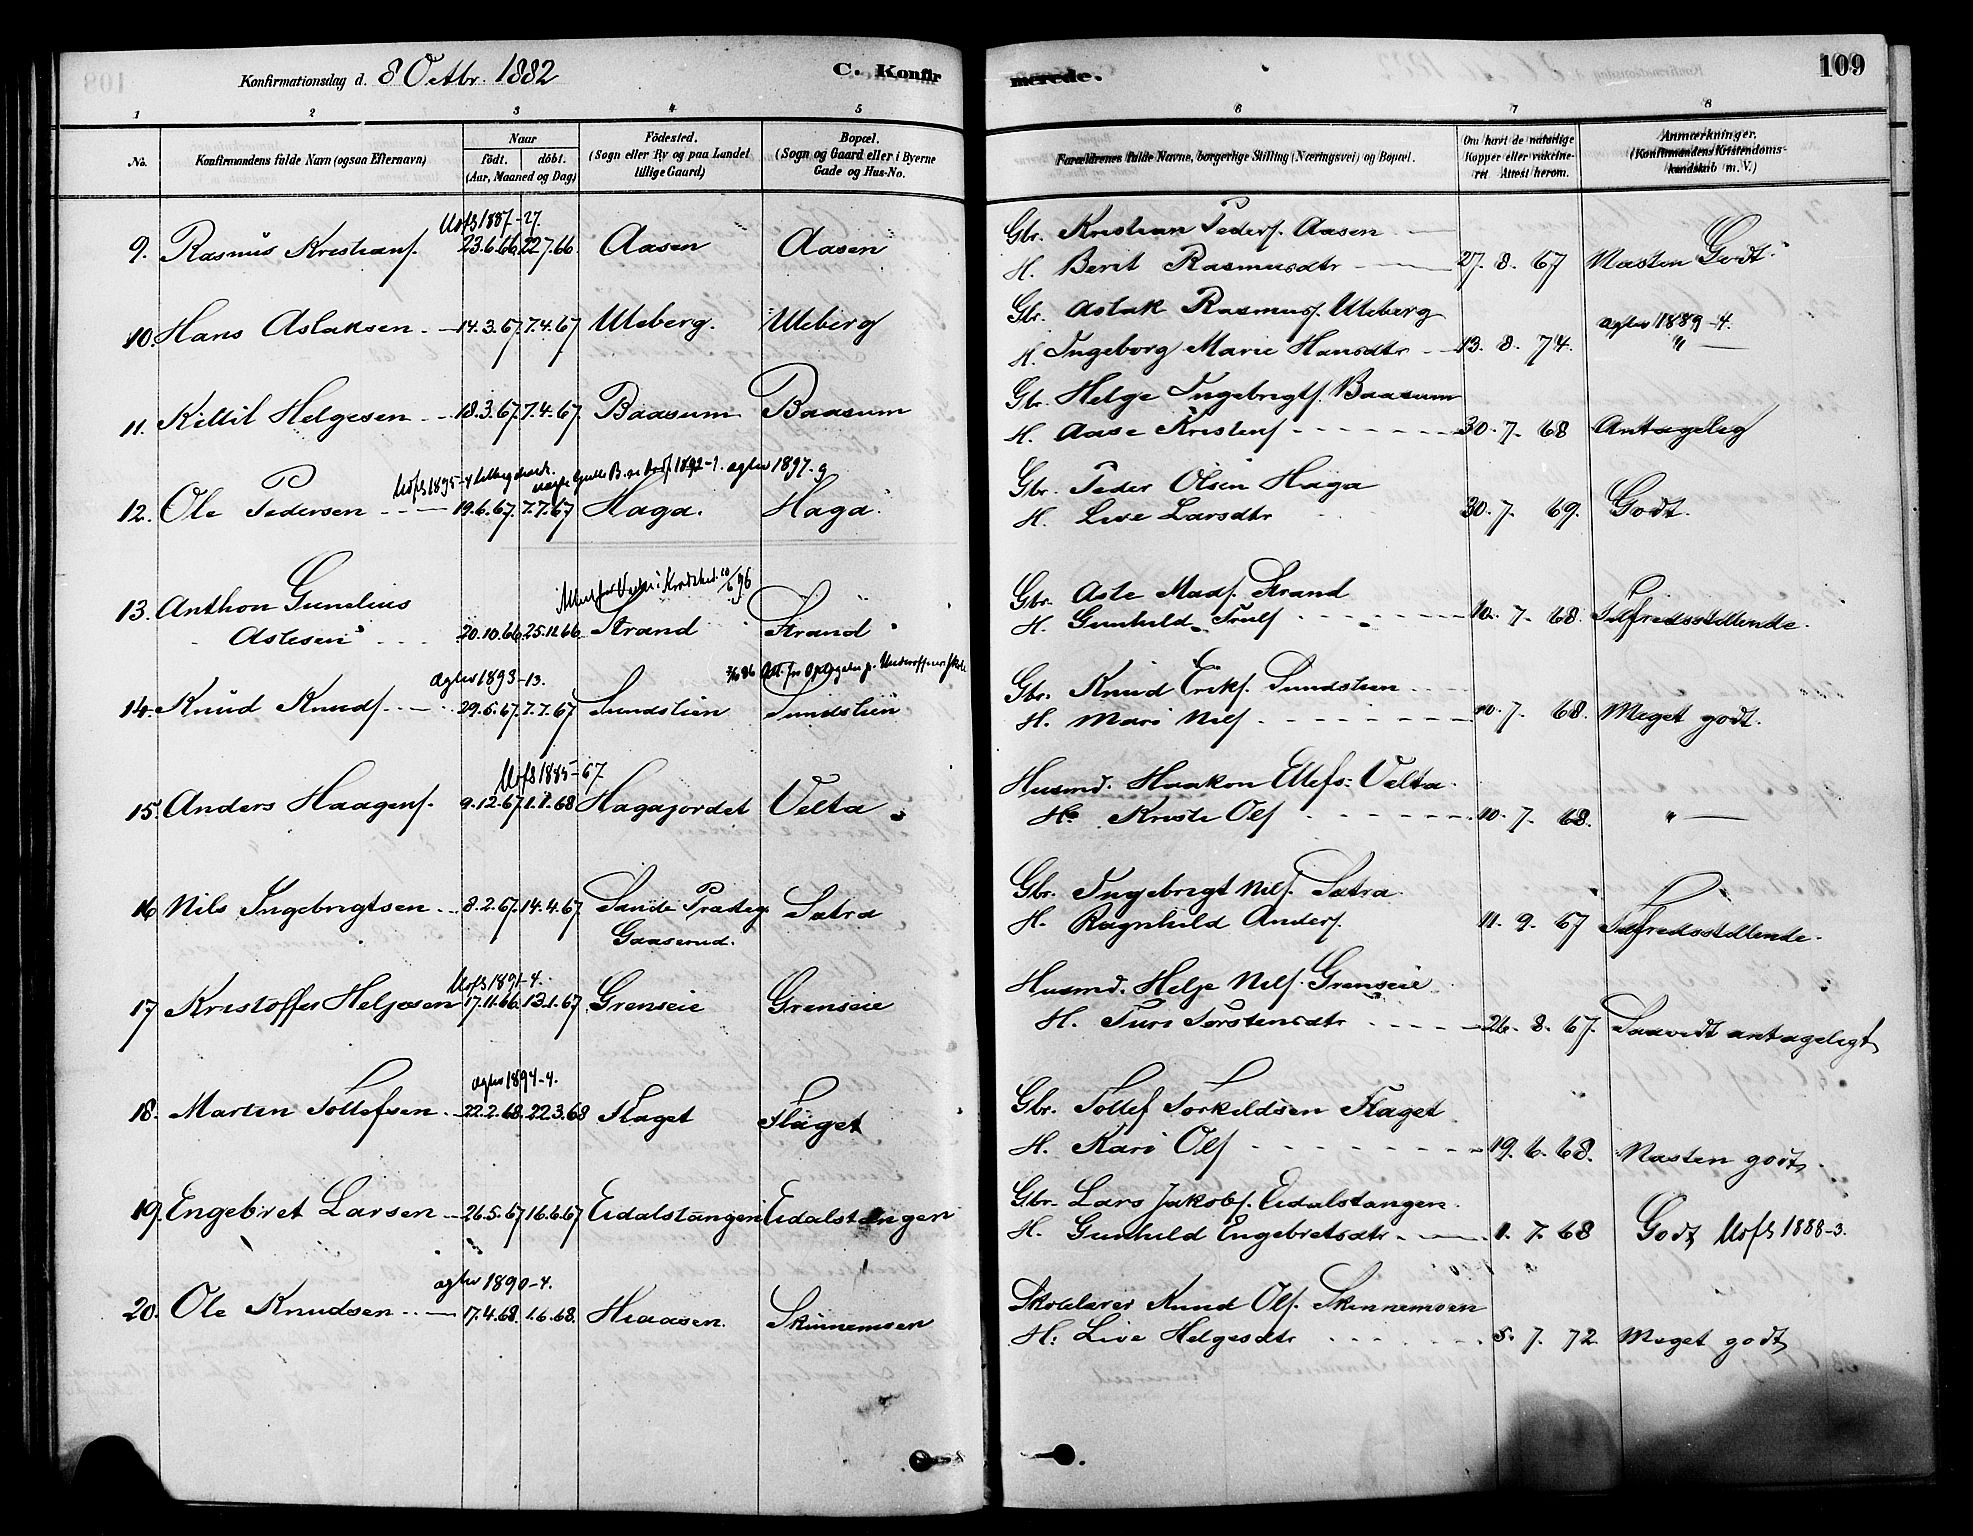 Konfirmationsdag d. 8 Octbr. 1882
C. Konfirmerede.
109
1 2 3 4 5 6 7 8
No. Konfirmandens fulde Navn (ogsaa Efternavn) Naar født. døbt. (Aar, Maaned og Dag) Fødested. (Sogn eller By og paa Landet tillige Gaard) Bopæl. (Sogn og Gaard eller i Byerne Gade og Hus-No. Forældrenes fulde Navne, borgerlige Stilling (Næringsvei) og Bopæl. Om havt de naturlige Kopper eller vakcineret Attest herom. Anmærkninger. (Konfirmandens Kristendomskundskab m. V.)
1887-27.
9. Rasmus Kristians. 23.6.66 22.7.66. Aasen Aasen Gbr. Kristian Peders. Aasen
H. Berit Rasmusdtr 27. 8. 67 Næsten Godt.
10. Hans Aslaksen 14.3.67. 7.4.67 Uleberg. Uleberg Gbr. Aslak Rasmus. Uleberg
H. Ingeborg Marie Hansdtr 13. 8. 74. 1889-4. "
11. Kittil Helgesen 18.3.67. 7.4.67 Baasum Baasum Gbr. Helge Ingebrigts. Baasum
H. Aase Kristens. 30. 7. 68 Antagelig
1895-4 1892-1. 1897. 9
12. Ole Pedersen 19.6.67. 7.7.67 Haga. Haga. Gbr. Peder Olsen Haga
H. Live Larsdtr 30. 7. 69. Godt.
13. Anthon Gunelius
Aslesen 20.10.66 25.11.66 Strand Strand Gbr. Asle Mads. Strand
H. Gunhild Truls. 10. 7. 68. Tilfredsstillende.
1893-13.
14. Knud Knuds. 29.5.67. 7.7.67 Sundstien Sundstien Gbr. Knud Eriks. Sundstien
H. Mari Nils. 10. 7. 68. Meget godt.
1885-67
15. Anders Haagens. 9.12.67 1.1.68 Hagajordet Velta Husmd. Haakon Ellefs. Velta
H. Kristi Ols. 10. 7. 68. "
16. Nils Ingebrigtsen 8.2.67. 14.4.67 Sande Præsteg.
Gaaserud. Sætra Gbr. Ingebrigt Nils. Sætra
H. Ragnhild Anders. 11. 9. 67 Tilfredsstillende.
1891-4.
17 Kristoffer Helgesen 17.11.66. 13.1.67 Grenseie Grenseie Husmd. Helge Nils. Grenseie
H. Turi Torstensdtr 26. 8. 67. Saavidt antageligt
1894-4.
18. Marten Tollefsen 22.2.68. 22.3.68 Flaget Flaget Gbr. Tollef Torkeldsen Flaget
H. Kari Ols. 19. 6. 68. Næsten godt.
19. Engebret Larsen 26.5.67 16.6.67 Eidalstangen Eidalstangen Gbr. Lars Jakobs. Eidalstangen
H. Gunhild Engebretsdtr 1. 7. 68 Godt 1888-3.
1890-4.
20. Ole Knudsen 17.4.68. 1.6.68. Hiaasen Skinnemoen Skolelærer Knud Ols. Skinnemoen
H. Live Helgesdtr 5. 7. 72 Meget godt